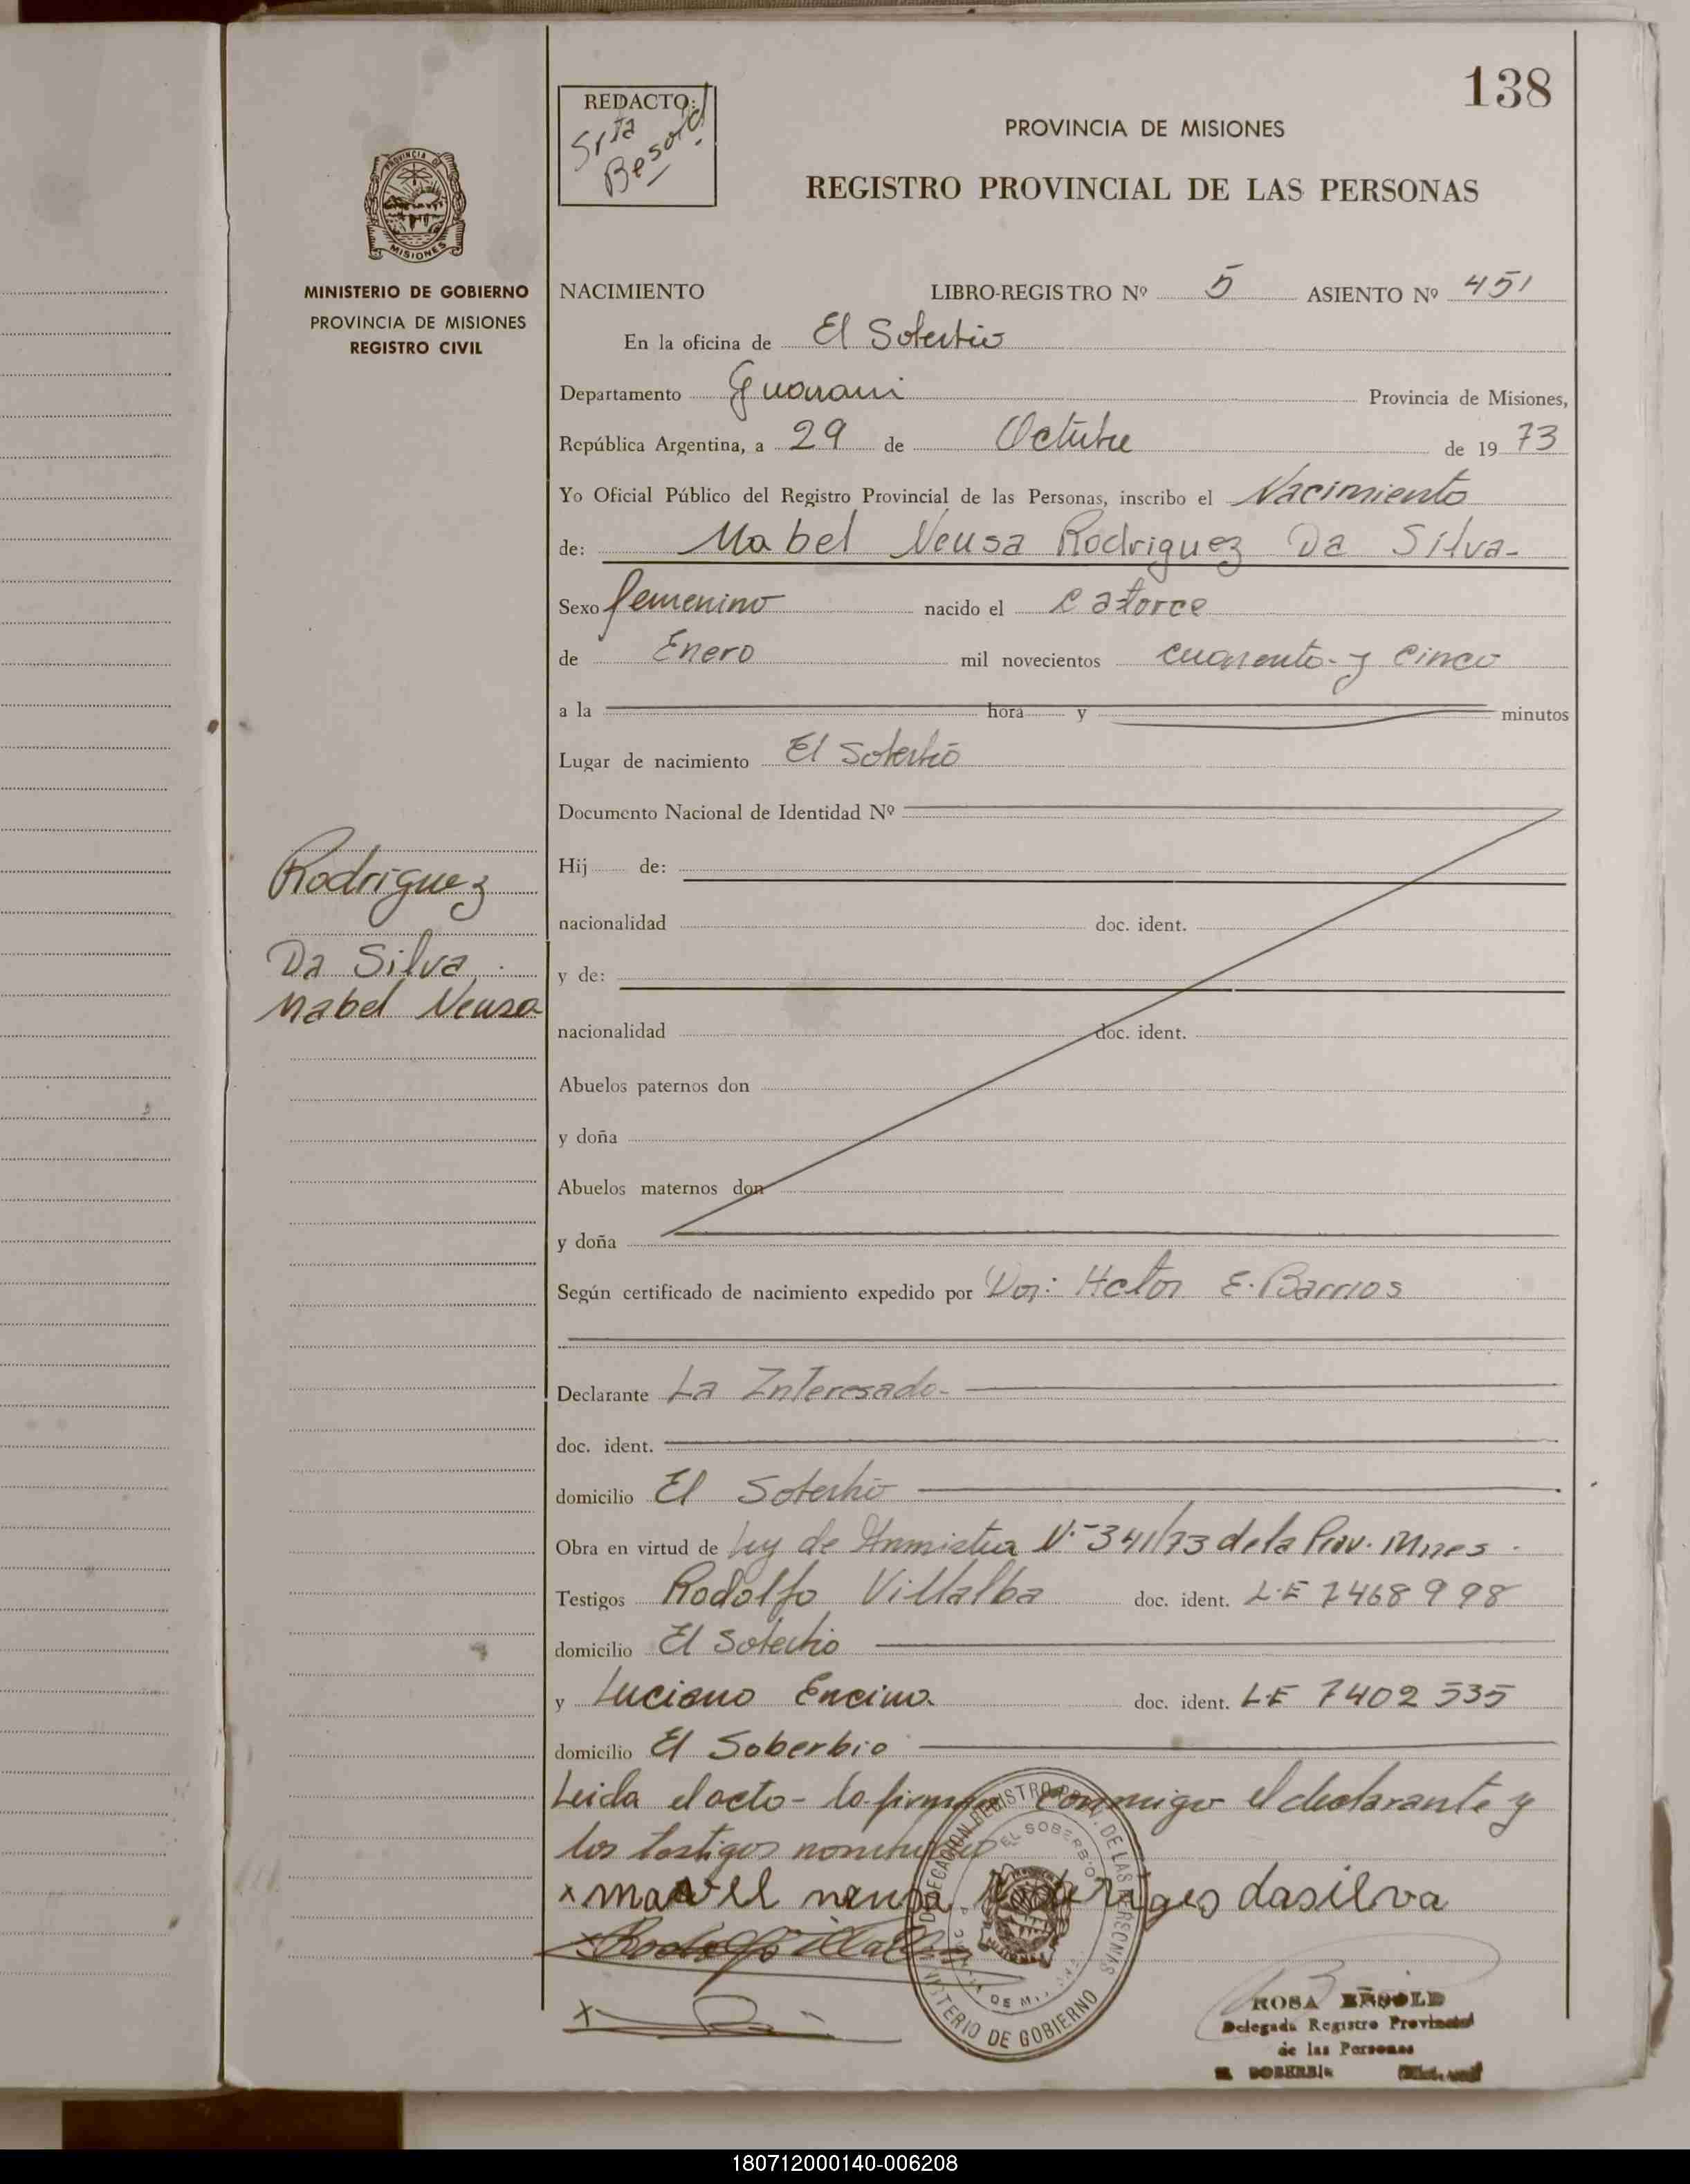 138
REDACTO:
Srta
Besold.
PROVINCIA DE MISIONES
REGISTRO PROVINCIAL DE LAS PERSONAS
PROVINCIA DE
MISIONES
MINISTERIO DE GOBIERNO
PROVINCIA DE MISIONES
REGISTRO CIVIL
NACIMIENTO LIBRO-REGISTRO Nº 5 ASIENTO Nº 451
En la oficina de El Soberbio
Departamento Guarani Provincia de Misiones,
República Argentina, a 29 de Octubre de 1973
Yo Oficial Público del Registro Provincial de las Personas, inscribo el Nacimiento
de: Mabel Neusa Rodriguez Da Silva-
Sexo femenino nacido el catorce
de Enero mil novecientos cuarenta y cinco
a la hora y minutos
Lugar de nacimiento El Soberbio
Documento Nacional de Identidad Nº
Hij de:
nacionalidad doc. ident.
y de:
nacionalidad doc. ident.
Abuelos paternos don
y doña
Abuelos maternos don
y doña
Rodriguez
Da Silva
Mabel Neusa
Según certificado de nacimiento expedido por Hctor E. Barrios
Declarante La Interesada-
doc. ident.
domicilio El Soberbio
Obra en virtud de Ley de Anmistia Nº 341/73 de la Prov. Mnes.
Testigos Rodolfo Villalba doc. ident. L.E 7468998
domicilio El Soberbio
y Luciano Encina doc. ident. L.E 7402535
domicilio El Soberbio
Leida el acta- la firman conmigo el declarante y
los testigos nombrados
x mavel neusa Rodriges dasilva
x Rodolfo Villalba
x
DELEGACION REGISTRO PROV. DE LAS PERSONAS
EL SOBERBIO
PROVINCIA DE MISIONES
MINISTERIO DE GOBIERNO
ROSA BESOLD
Delegada Registro Provincial
de las Personas
EL SOBERBIO
180712000140-006208